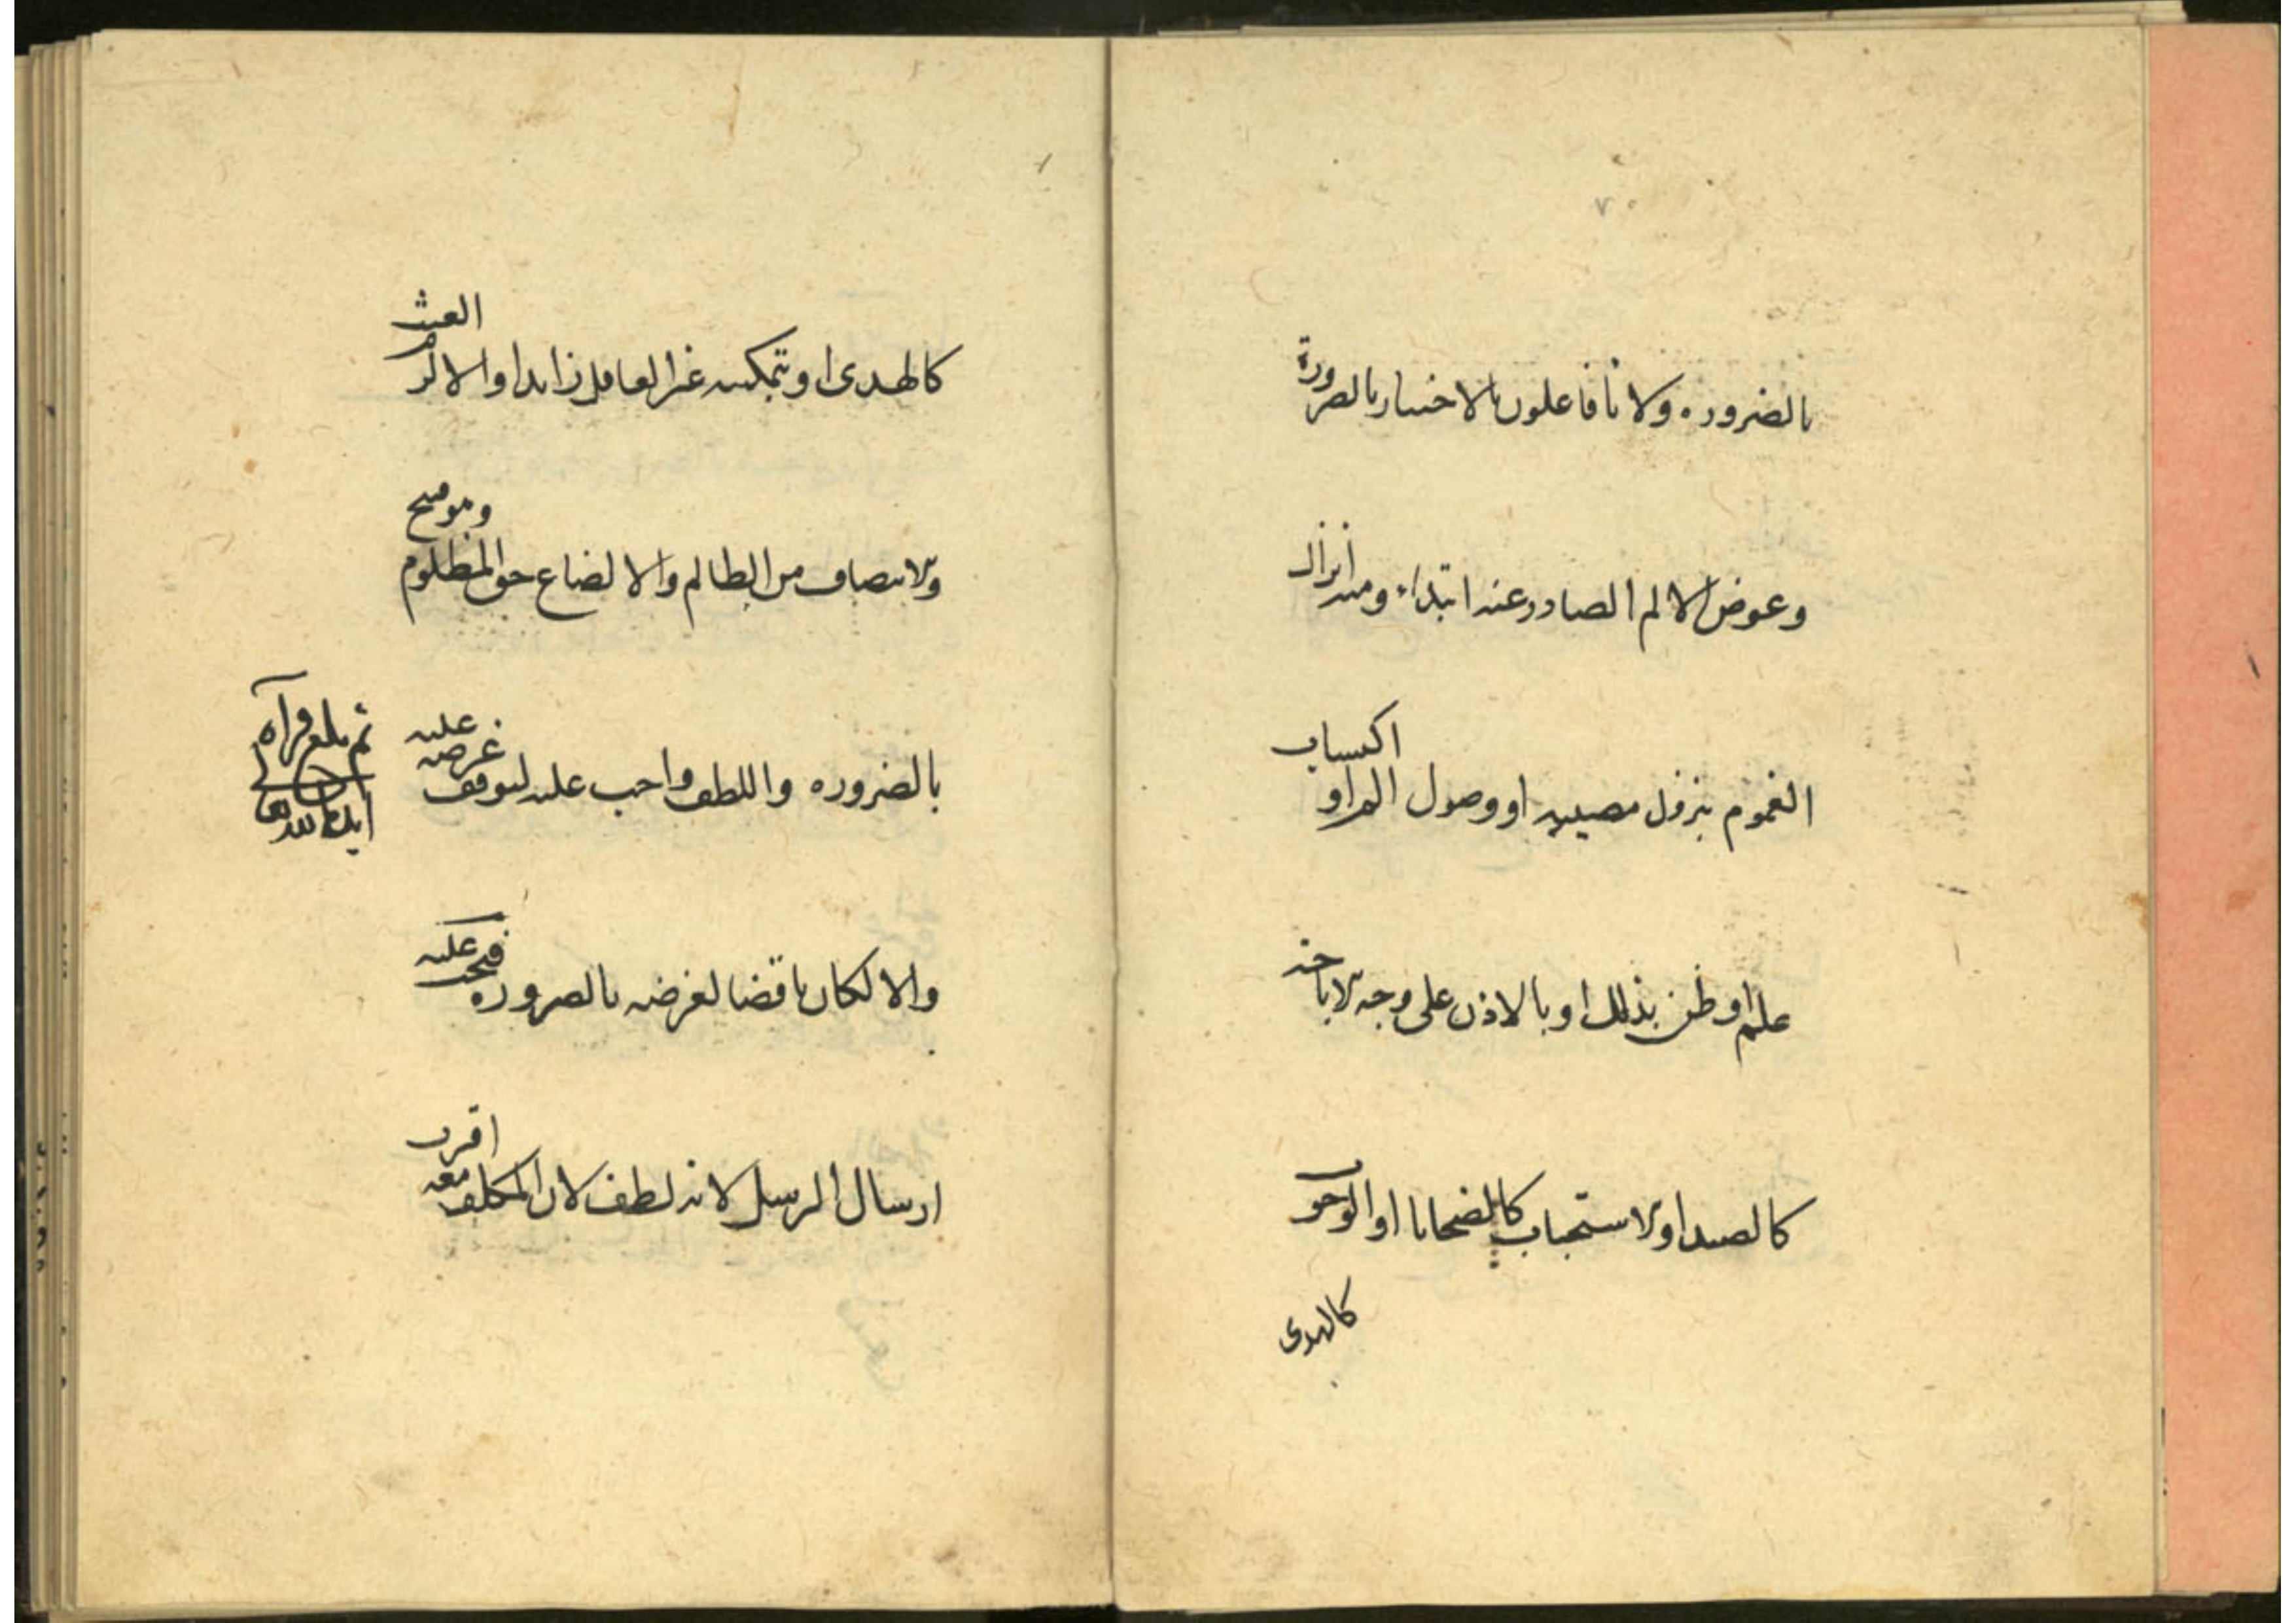 بالضروره ولانا فاعلون بالاختيار بالضرورة
وعوض الالم الصادر عنه ابتداء ومنه انزال
الغموم بنزول مصيبه او وصول الم او اكتساب
علم او ظن بذلك او بالاذن على وجه الاباحه
كالصيد او الاستحباب كالضحايا او الوجوب
كالهدى
كالهدى او بتمكينه غير العاقل زايدا والا لزم العبث
والانتصاف من الظالم والا لضاع حق المظلوم وهو قبيح
بالضروره واللطف واجب عليه لتوقف غرضه عليه
والا لكان ناقضا لغرضه بالضروره فيجب عليه
ارسال الرسل لانه لطف لان المكلف معه اقرب
ثم بلغ قرآه
ايده الله تعالى